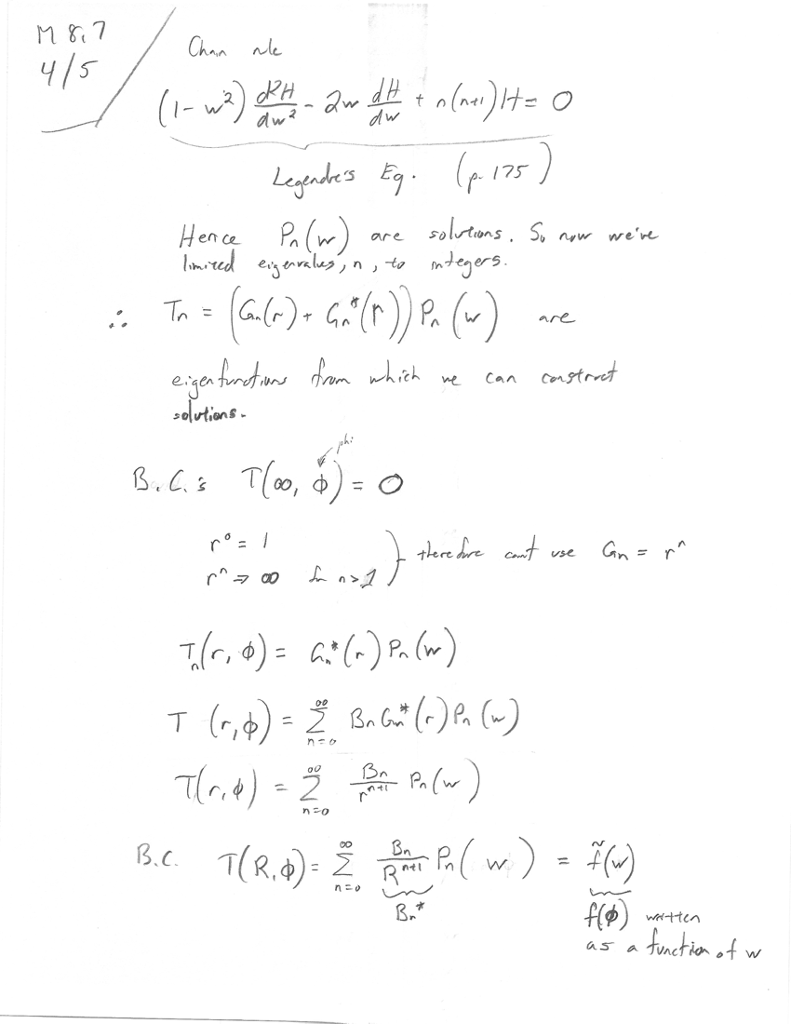 M 8.7
4/5
Chain rule
(1 - w²) d²H/dw² - 2w dH/dw + n(n+1)H = 0
Legendre's Eq. (p. 175)
Hence Pn(w) are solutions. So now we've
limited eigenvalues, n, to integers.
∴ Tn = (Gn(r) + Gn*(r)) Pn(w) are
eigenfunctions from which we can construct
solutions.
phi
B.C.'s T(∞, ϕ) = 0
r⁰ = 1
rⁿ ⇒ ∞ for n>1 } therefore can't use Gn = rⁿ
Tn(r, ϕ) = Gn*(r) Pn(w)
T (r, ϕ) = ∑ n=0 ∞ Bn Gn*(r) Pn(w)
T(r, ϕ) = ∑ n=0 ∞ Bn/rⁿ⁺¹ Pn(w)
B.C. T(R, ϕ) = ∑ n=0 ∞ Bn/Rⁿ⁺¹ Pn(w) = f̃(w)
Bn*
f(ϕ) written
as a function of w